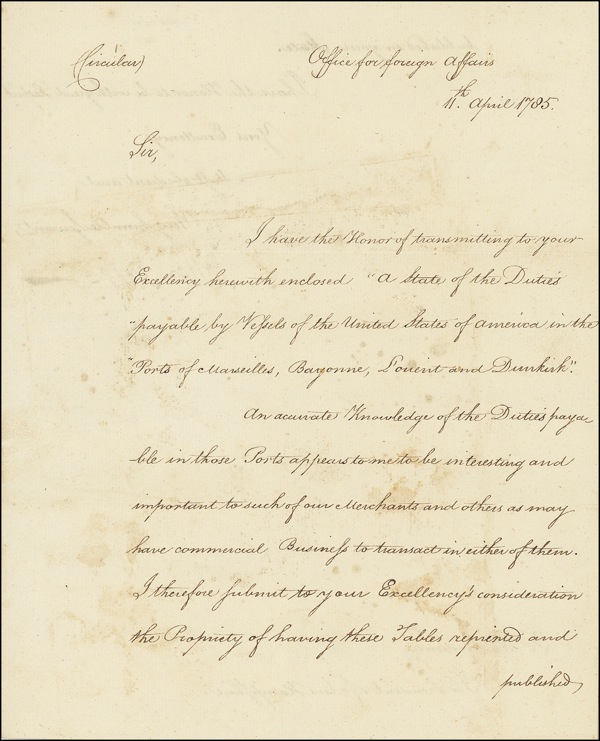 (Circular)
Office for foreign Affairs
11.th April 1785.
Sir,
I have the Honor of transmitting to your
Excellency herewith enclosed "a State of the Duties
"payable by Vessels of the United States of america in the
"Ports of Marseilles, Bayonne, L'orient and Dunkirk".
An accurate Knowledge of the Duties paya-
ble in those Ports appears to me to be interesting and
important to such of our Merchants and others as may
have commercial Business to transact in either of them.
I therefore submit to your Excellency's consideration
the Propriety of having these Tables reprinted and
published,